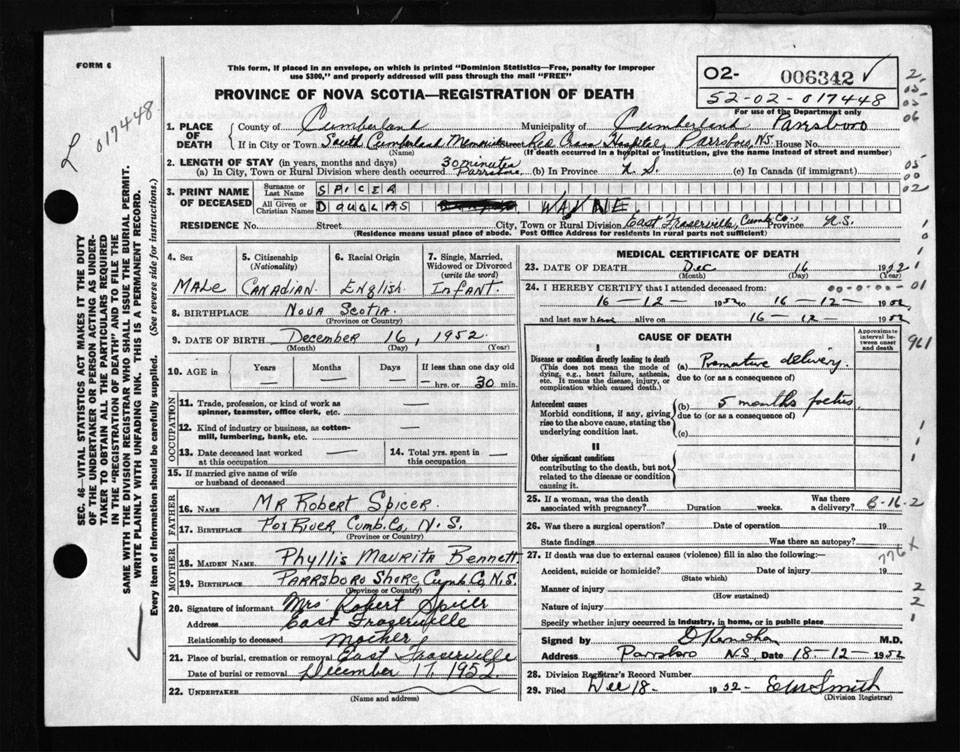 FORM 6
This form, if placed in an envelope, on which is printed "Dominion Statistics—Free, penalty for improper
use $300," and properly addressed will pass through the mail "FREE"
PROVINCE OF NOVA SCOTIA—REGISTRATION OF DEATH
O2- 006342 ✓
52-02-017448
For use of the Department only
L 017448
1. PLACE OF DEATH County of Cumberland Municipality of Cumberland Parrsboro
If in City or Town South Cumberland Memorial Street Red Cross Hospital, Parrsboro, N.S. House No.
(Name) (If death occurred in a hospital or institution, give the name instead of street and number)
2. LENGTH OF STAY (in years, months and days) 30 minutes
(a) In City, Town or Rural Division where death occurred Parrsboro (b) In Province N.S. (c) In Canada (if immigrant)
3. PRINT NAME OF DECEASED Surname or Last Name SPICER
All Given or Christian Names DOUGLAS WAYNE.
RESIDENCE No. Street City, Town or Rural Division East Fraserville, Cumb. Co., Province N.S.
(Residence means usual place of abode. Post Office Address for residents in rural parts not sufficient)
4. Sex Male
5. Citizenship (Nationality) Canadian
6. Racial Origin English
7. Single, Married, Widowed or Divorced (write the word) Infant.
8. BIRTHPLACE Nova Scotia
(Province or Country)
9. DATE OF BIRTH December 16, 1952
(Month) (Day) (Year)
10. AGE in Years — Months — Days — If less than one day — hrs. or 30 min.
OCCUPATION
11. Trade, profession, or kind of work as
spinner, teamster, office clerk, etc. —
12. Kind of industry or business, as cotton-
mill, lumbering, bank, etc. —
13. Date deceased last worked
at this occupation —
14. Total yrs. spent in
this occupation —
15. If married give name of wife
or husband of deceased
FATHER
16. Name Mr Robert Spicer
17. Birthplace Fox River, Cumb. Co, N.S.
(Province or Country)
MOTHER
18. Maiden Name Phyllis Maurita Bennett
19. Birthplace Parrsboro Shore, Cumb. Co, N.S.
(Province or Country)
20. Signature of informant Mrs. Robert Spicer
Address East Fraserville
Relationship to deceased Mother
21. Place of burial, cremation or removal East Fraserville
Date of burial or removal December 17, 1952
22. Undertaker
(Name and address)
MEDICAL CERTIFICATE OF DEATH
23. DATE OF DEATH Dec 16 1952
(Month) (Day) (Year)
24. I HEREBY CERTIFY that I attended deceased from:
16-12- 1952 to 16-12- 1952
and last saw h alive on 16-12- 1952
CAUSE OF DEATH
Approximate interval between onset and death
I
Disease or condition directly leading to death
(This does not mean the mode of
dying, e.g., heart failure, asthenia,
etc. It means the disease, injury, or
complication which caused death.)
(a) Premature delivery.
due to (or as a consequence of)
Antecedent causes
Morbid conditions, if any, giving
rise to the above cause, stating the
underlying condition last.
(b) 5 months foetus
due to (or as a consequence of)
(c)
II
Other significant conditions
contributing to the death, but not
related to the disease or condition
causing it.
25. If a woman, was the death
associated with pregnancy? Duration weeks. Was there a delivery?
26. Was there a surgical operation? Date of operation 19
State findings Was there an autopsy?
27. If death was due to external causes (violence) fill in also the following:—
Accident, suicide or homicide? Date of injury 19
(State which)
Manner of injury
(How sustained)
Nature of injury
Specify whether injury occurred in industry, in home, or in public place
Signed by M.D.
Address Parrsboro N.S. Date 18-12- 1952
28. Division Registrar's Record Number
29. Filed Dec 18- 1952 E W Smith
(Division Registrar)
SEC. 46—VITAL STATISTICS ACT MAKES IT THE DUTY
OF THE UNDERTAKER OR PERSON ACTING AS UNDER-
TAKER TO OBTAIN ALL THE PARTICULARS REQUIRED
IN THE "REGISTRATION OF DEATH" AND TO FILE THE
SAME WITH THE DIVISION REGISTRAR WHO SHALL ISSUE THE BURIAL PERMIT.
WRITE PLAINLY WITH UNFADING INK. THIS IS A PERMANENT RECORD.
Every item of information should be carefully supplied. (See reverse side for instructions.)
961
776